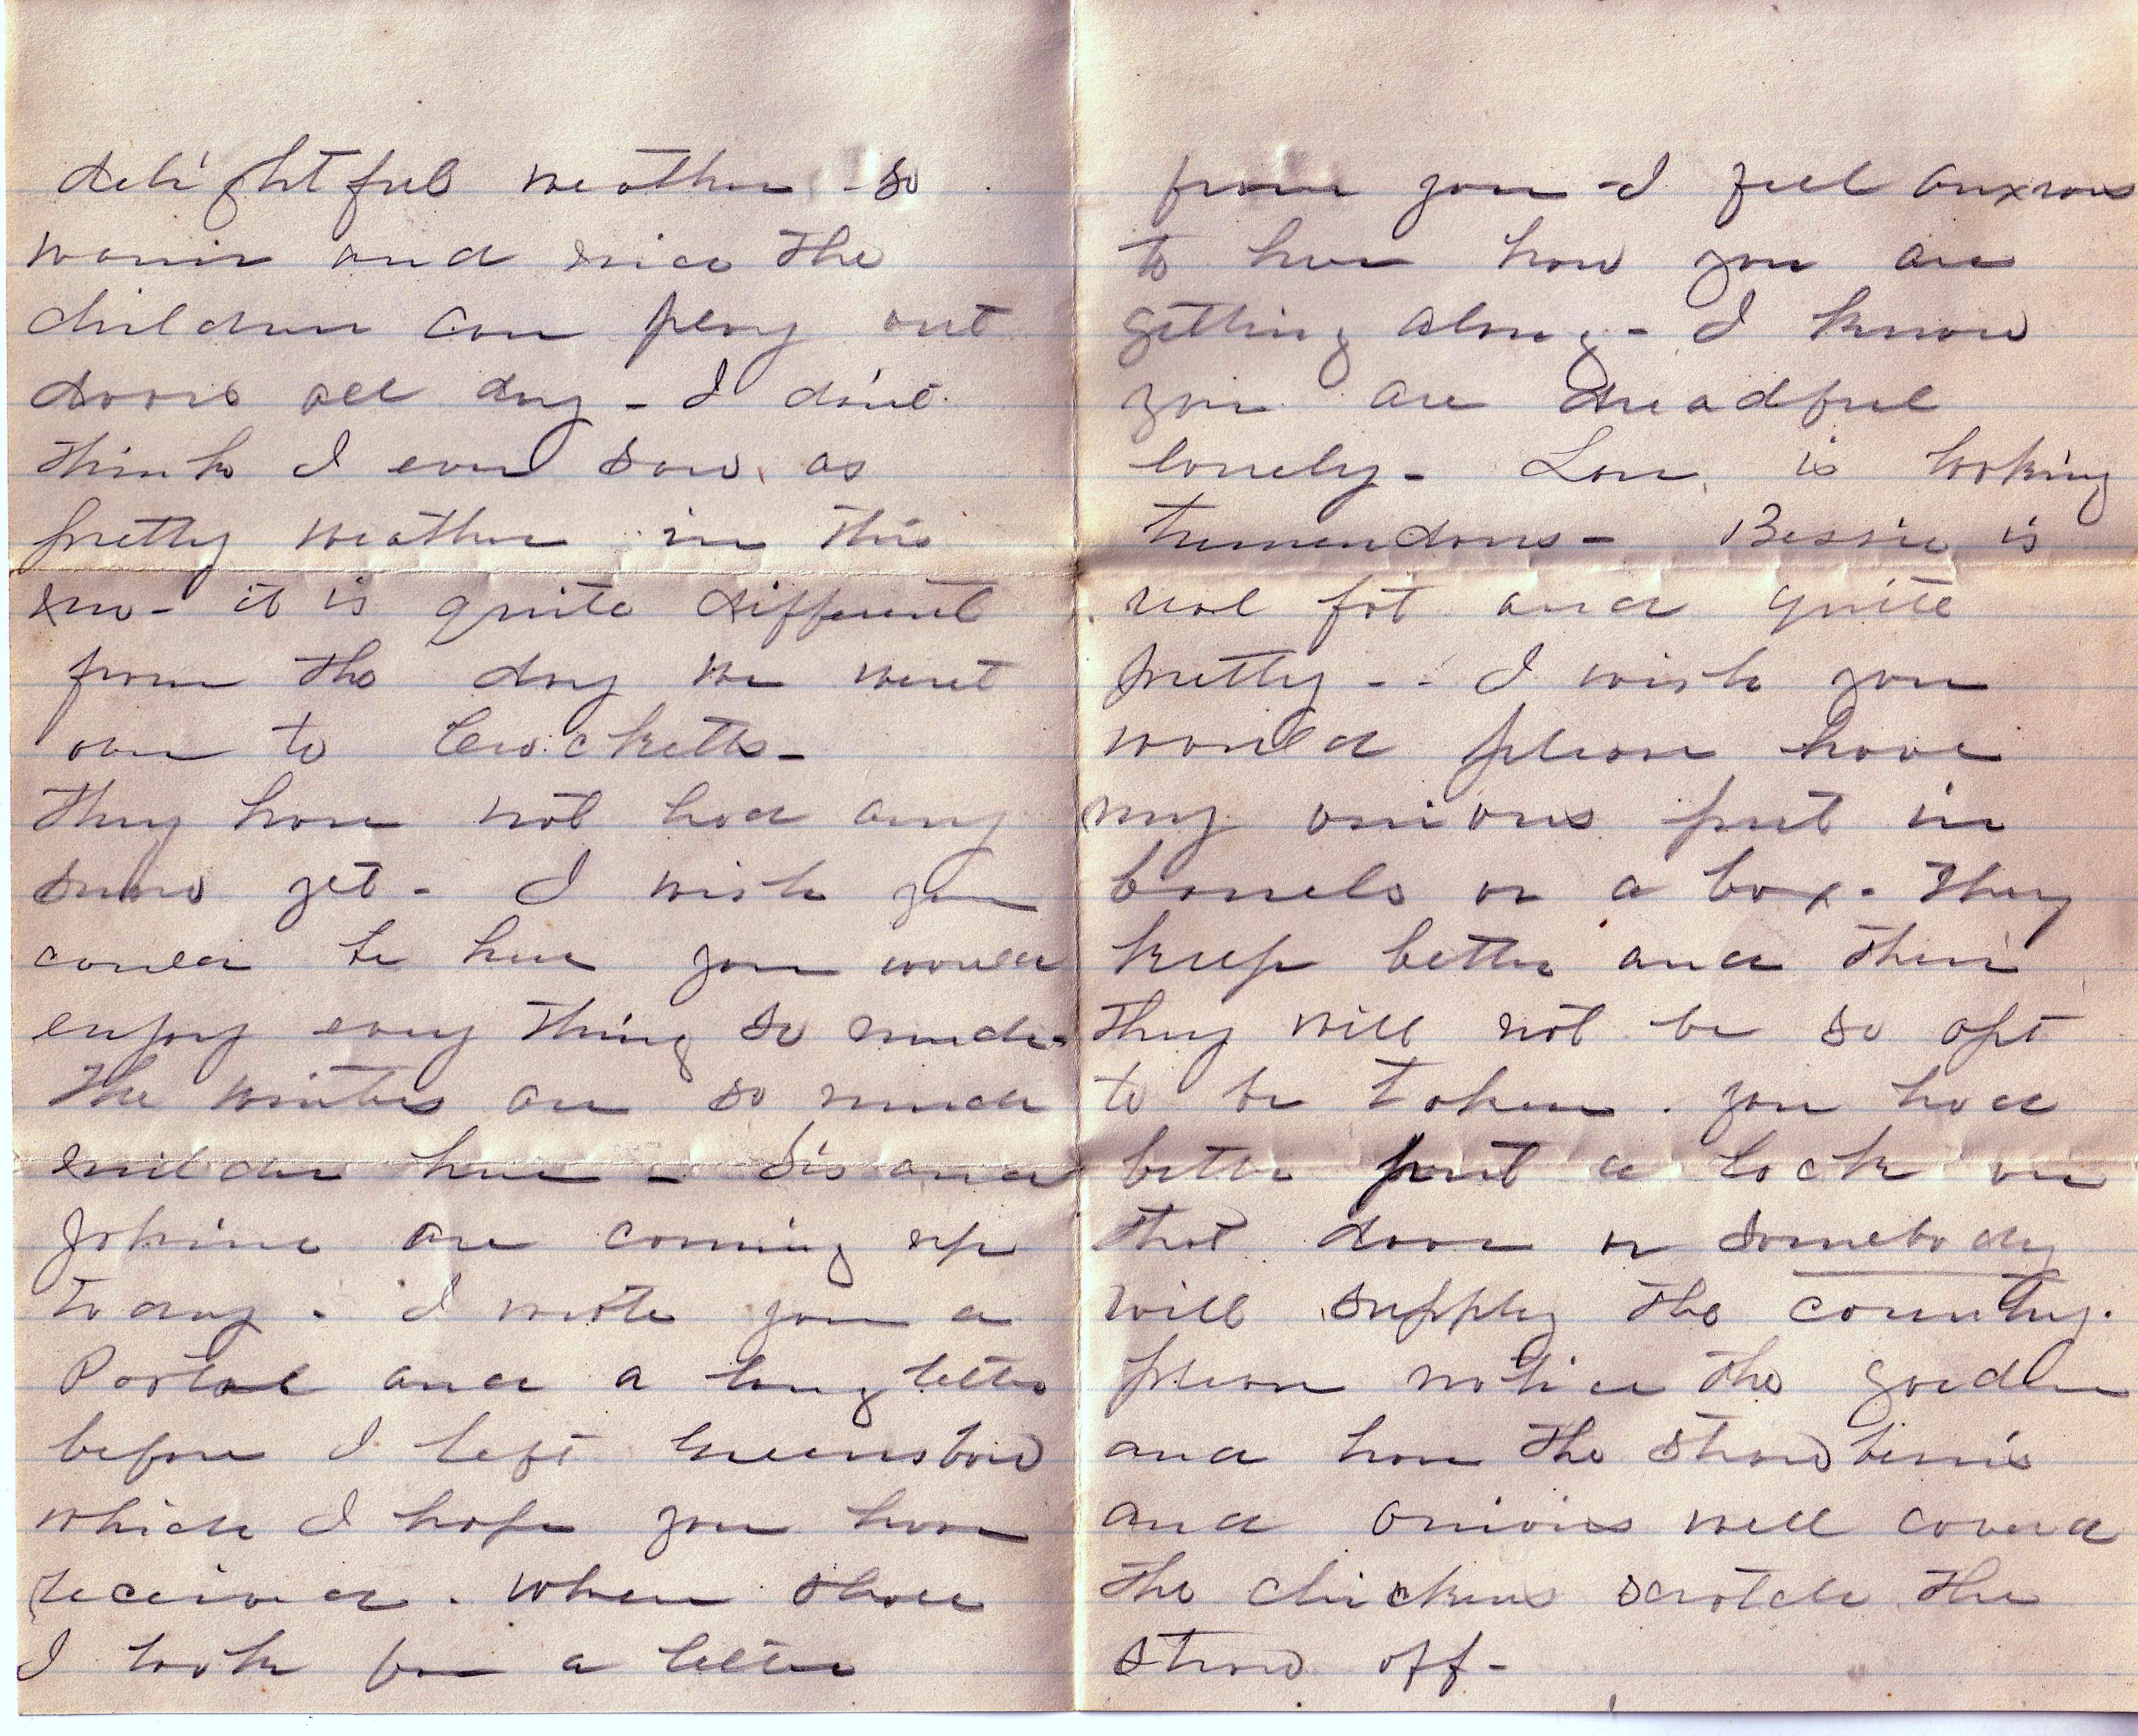 delightful weather - so
warm and nice the
children can play out
doors all day - I don't
think I ever saw as
pretty weather in this
- it is quite different
from the day we went
over to Crocketts -
They have not had any
snow yet - I wish you
could be here you would
enjoy every thing so much -
The winters are so much
milder here - Sis and
are coming up
today - I wrote you a
Postal and a long letter
before I left Greensboro
which I hope you have
received. When shall
I look for a letter
from you - I feel anxious
to hear how you are
getting along - I know
you are dreadful
lonely - Lou is looking
tremendous - Bessie is
real fat and quite
pretty - - I wish you
would please have
my onions put in
barrels or a box - They
keep better and then
they will not be so apt
to be taken. you had
better put a lock on
that door or somebody
will supply the country.
please notice the garden
and have the strawberries
and onions well coverd
the chickens scratch the
straw off -